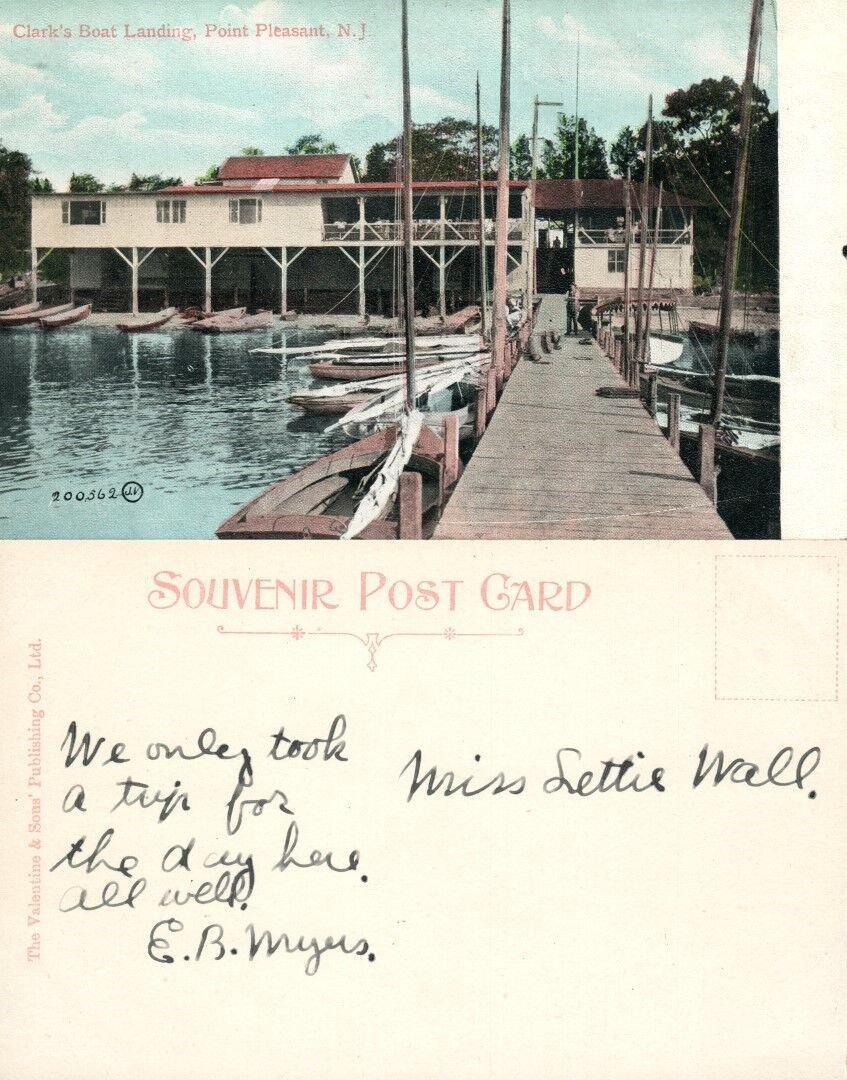 Clark's Boat Landing, Point Pleasant, N.J.
200,562 JV
SOUVENIR POST CARD
The Valentine & Sons' Publishing Co., Ltd.
We only took
a trip for
the day here.
all well.
E. B. Myers.
Miss Lettie Wall.